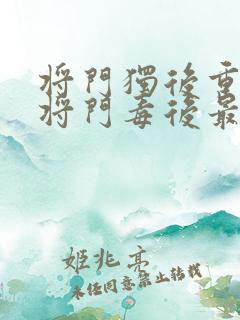 将門獨後重
将門毒後最
姬兆亮
未经同意禁止转载